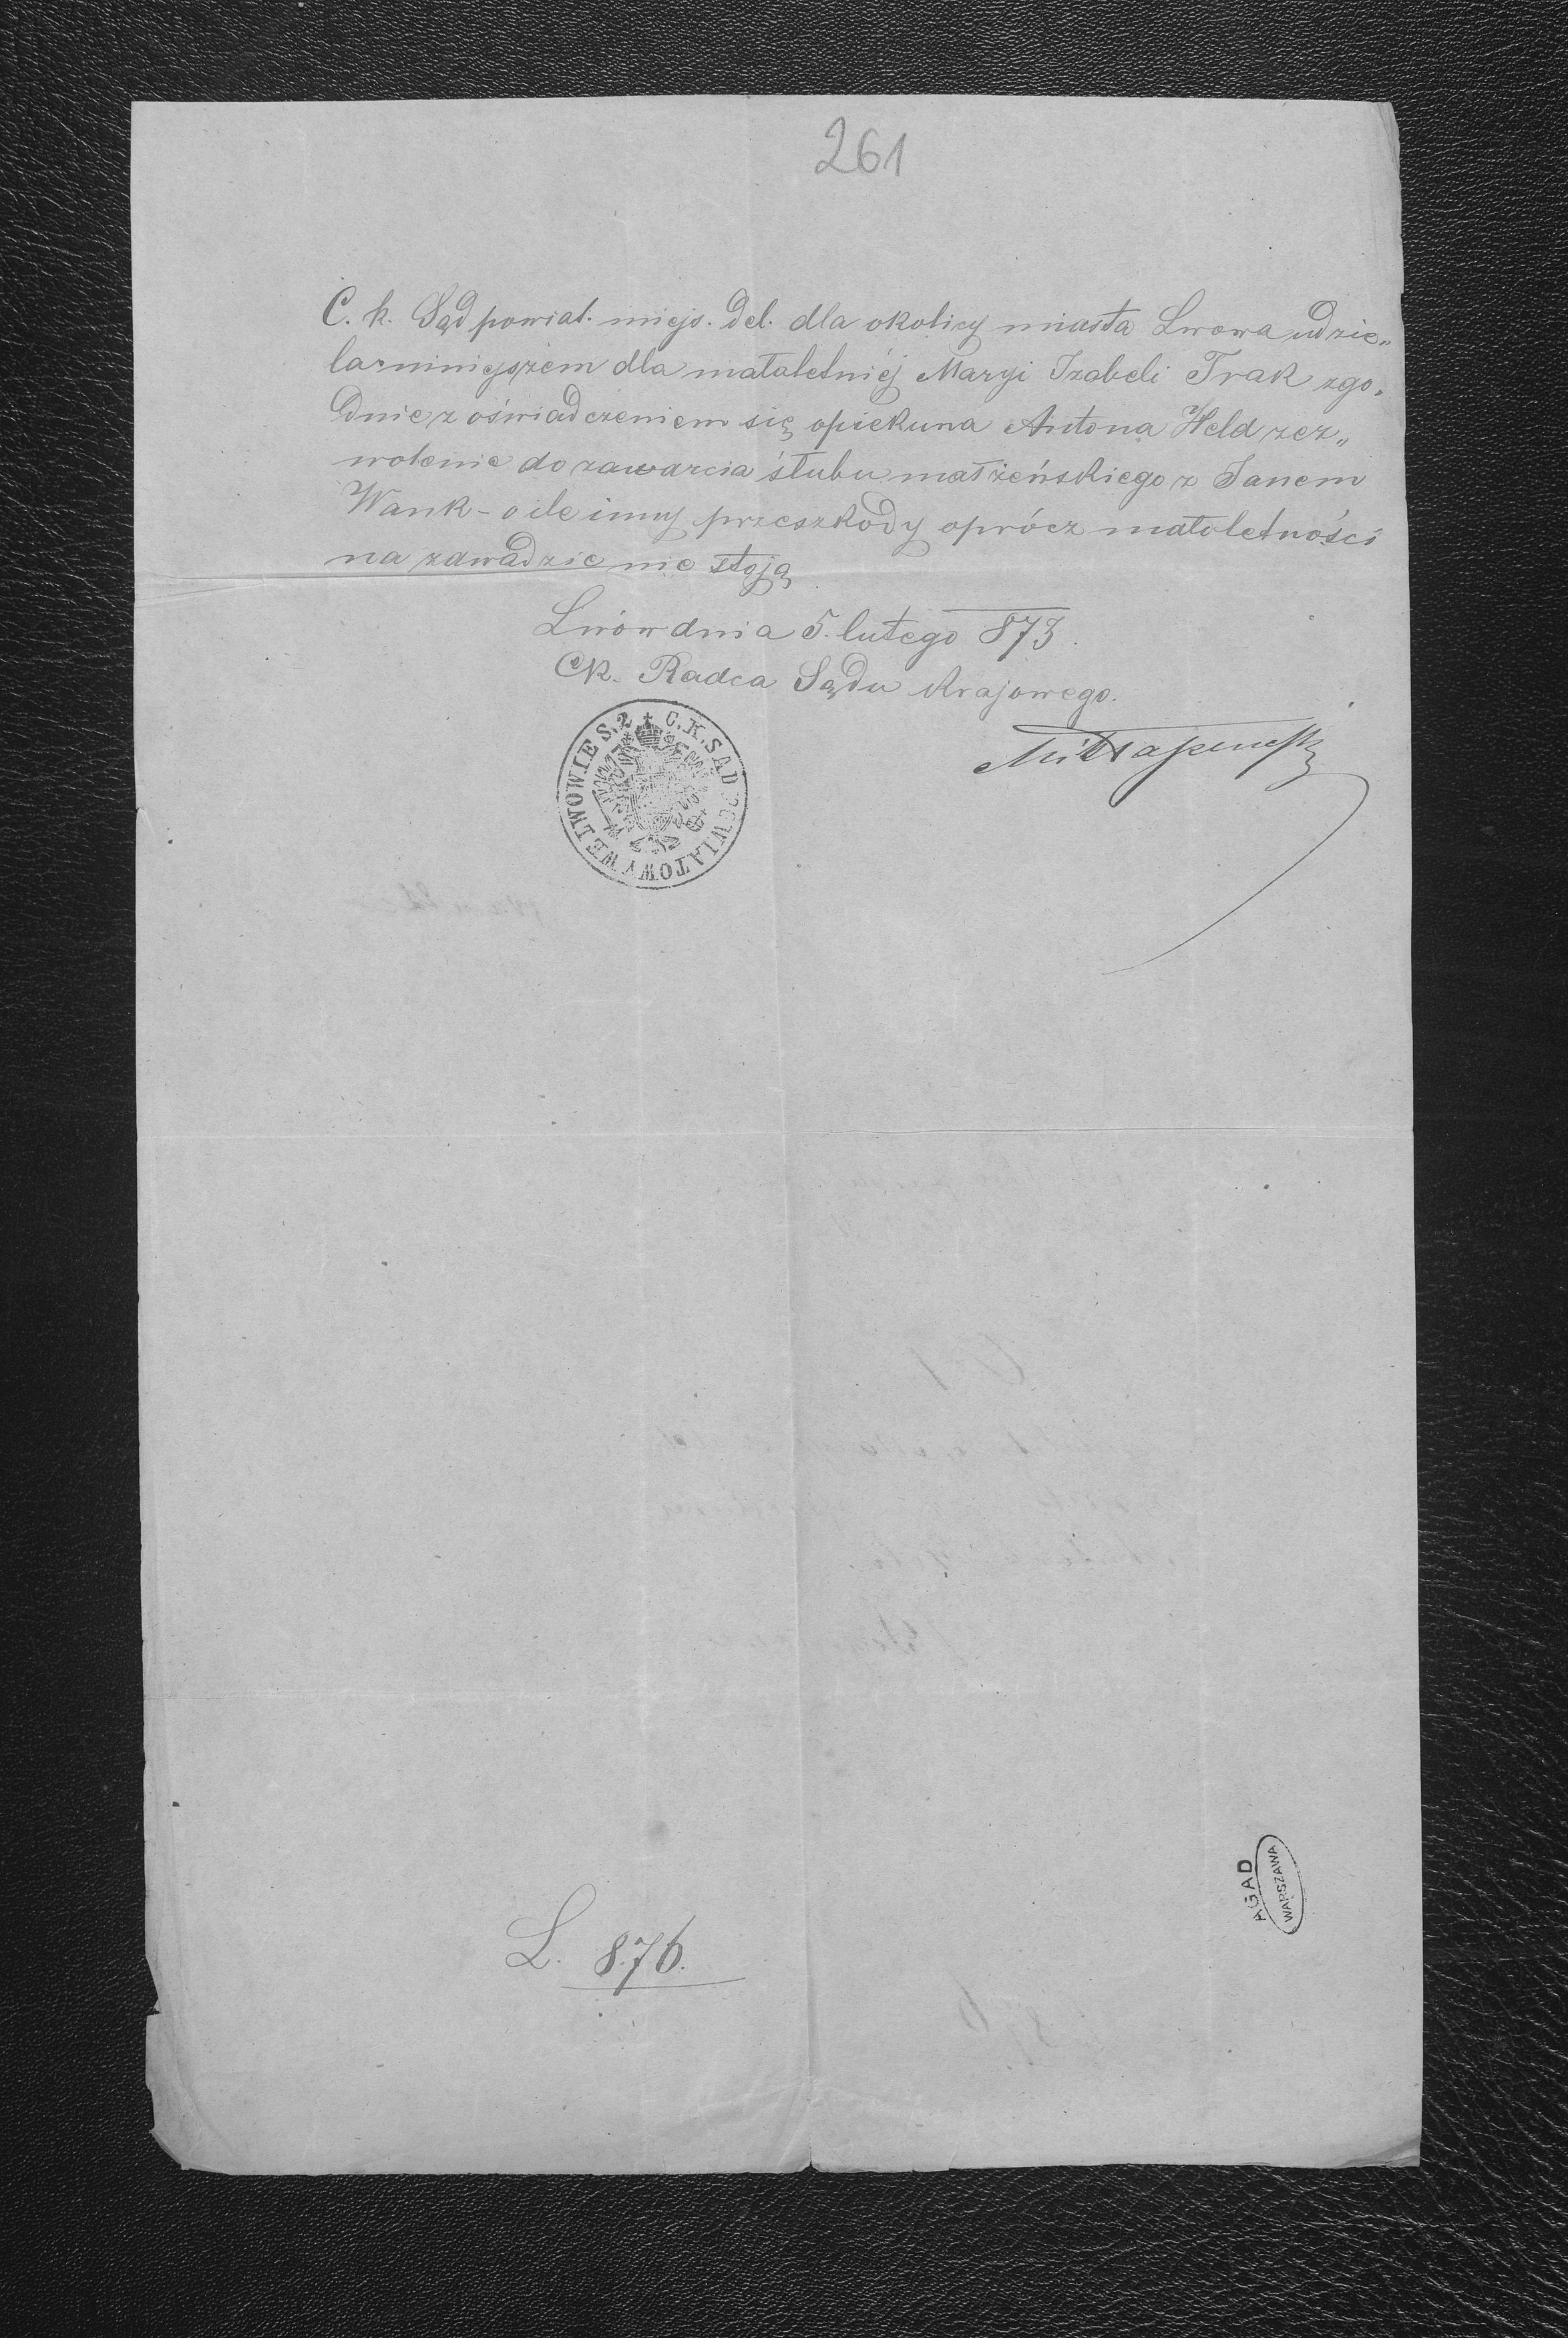 261
C. k. Sąd powiat. miejs. del. dla okolicy miasta Lwowa udzie„
la niniejszem dla małaletniéj Maryi Izabeli Trak zgo„
dnie z oświadczeniem się opiekuna Antona Held zez„
wolenie do zawarcia ślubu małżeńskiego z Janem
Wank – o ile inny przeszkody oprócz małoletności
na zawadzie nie stoją
Lwów dnia 5. lutego 873.
Ck. Radca Sądu Krajowego.
C. K. SĄD POWIATOWY WE LWOWIE S. 2
L. 876.
AGAD
WARSZAWA